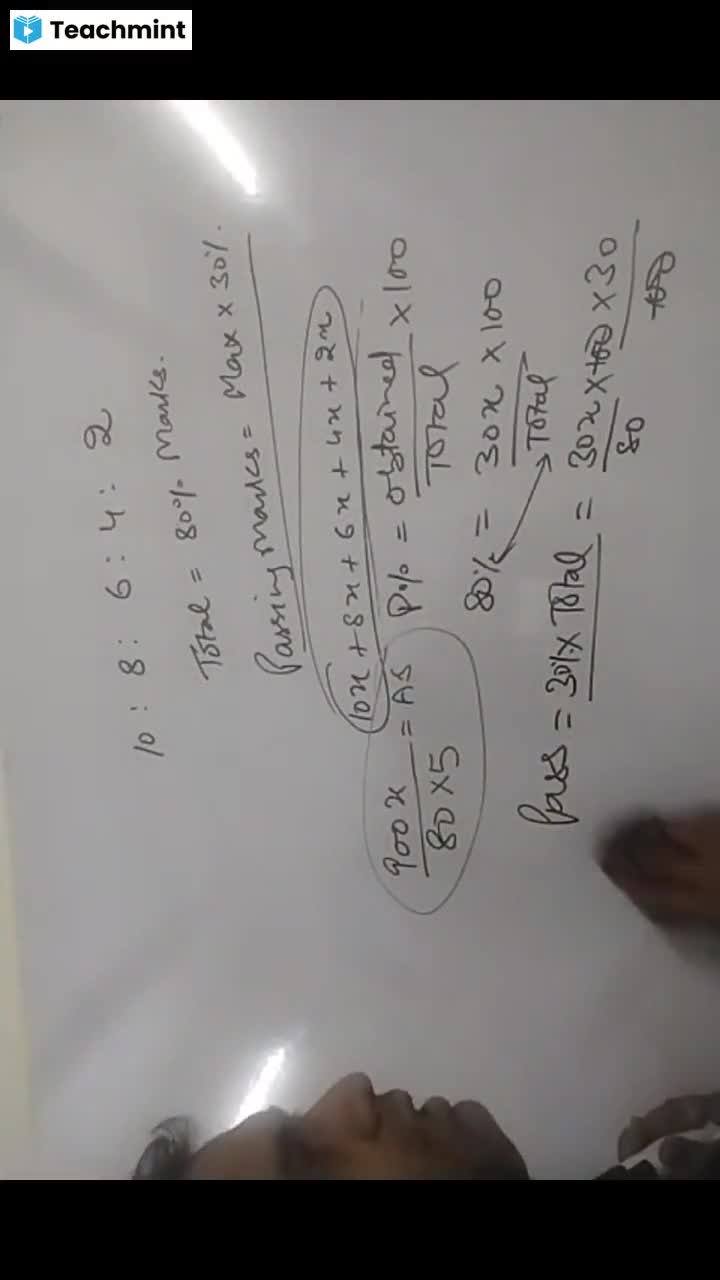 Teachmint
10 : 8 : 6 : 4 : 2
Total = 80% Marks.
Passing Marks = Max × 30%.
10x + 8x + 6x + 4x + 2x
900x / 80 × 5 = AS
P% = obtained / Total × 100
80% = 30x × 100 / Total
Pass = 30% × Total = 30x × 100 × 30 / 80 100